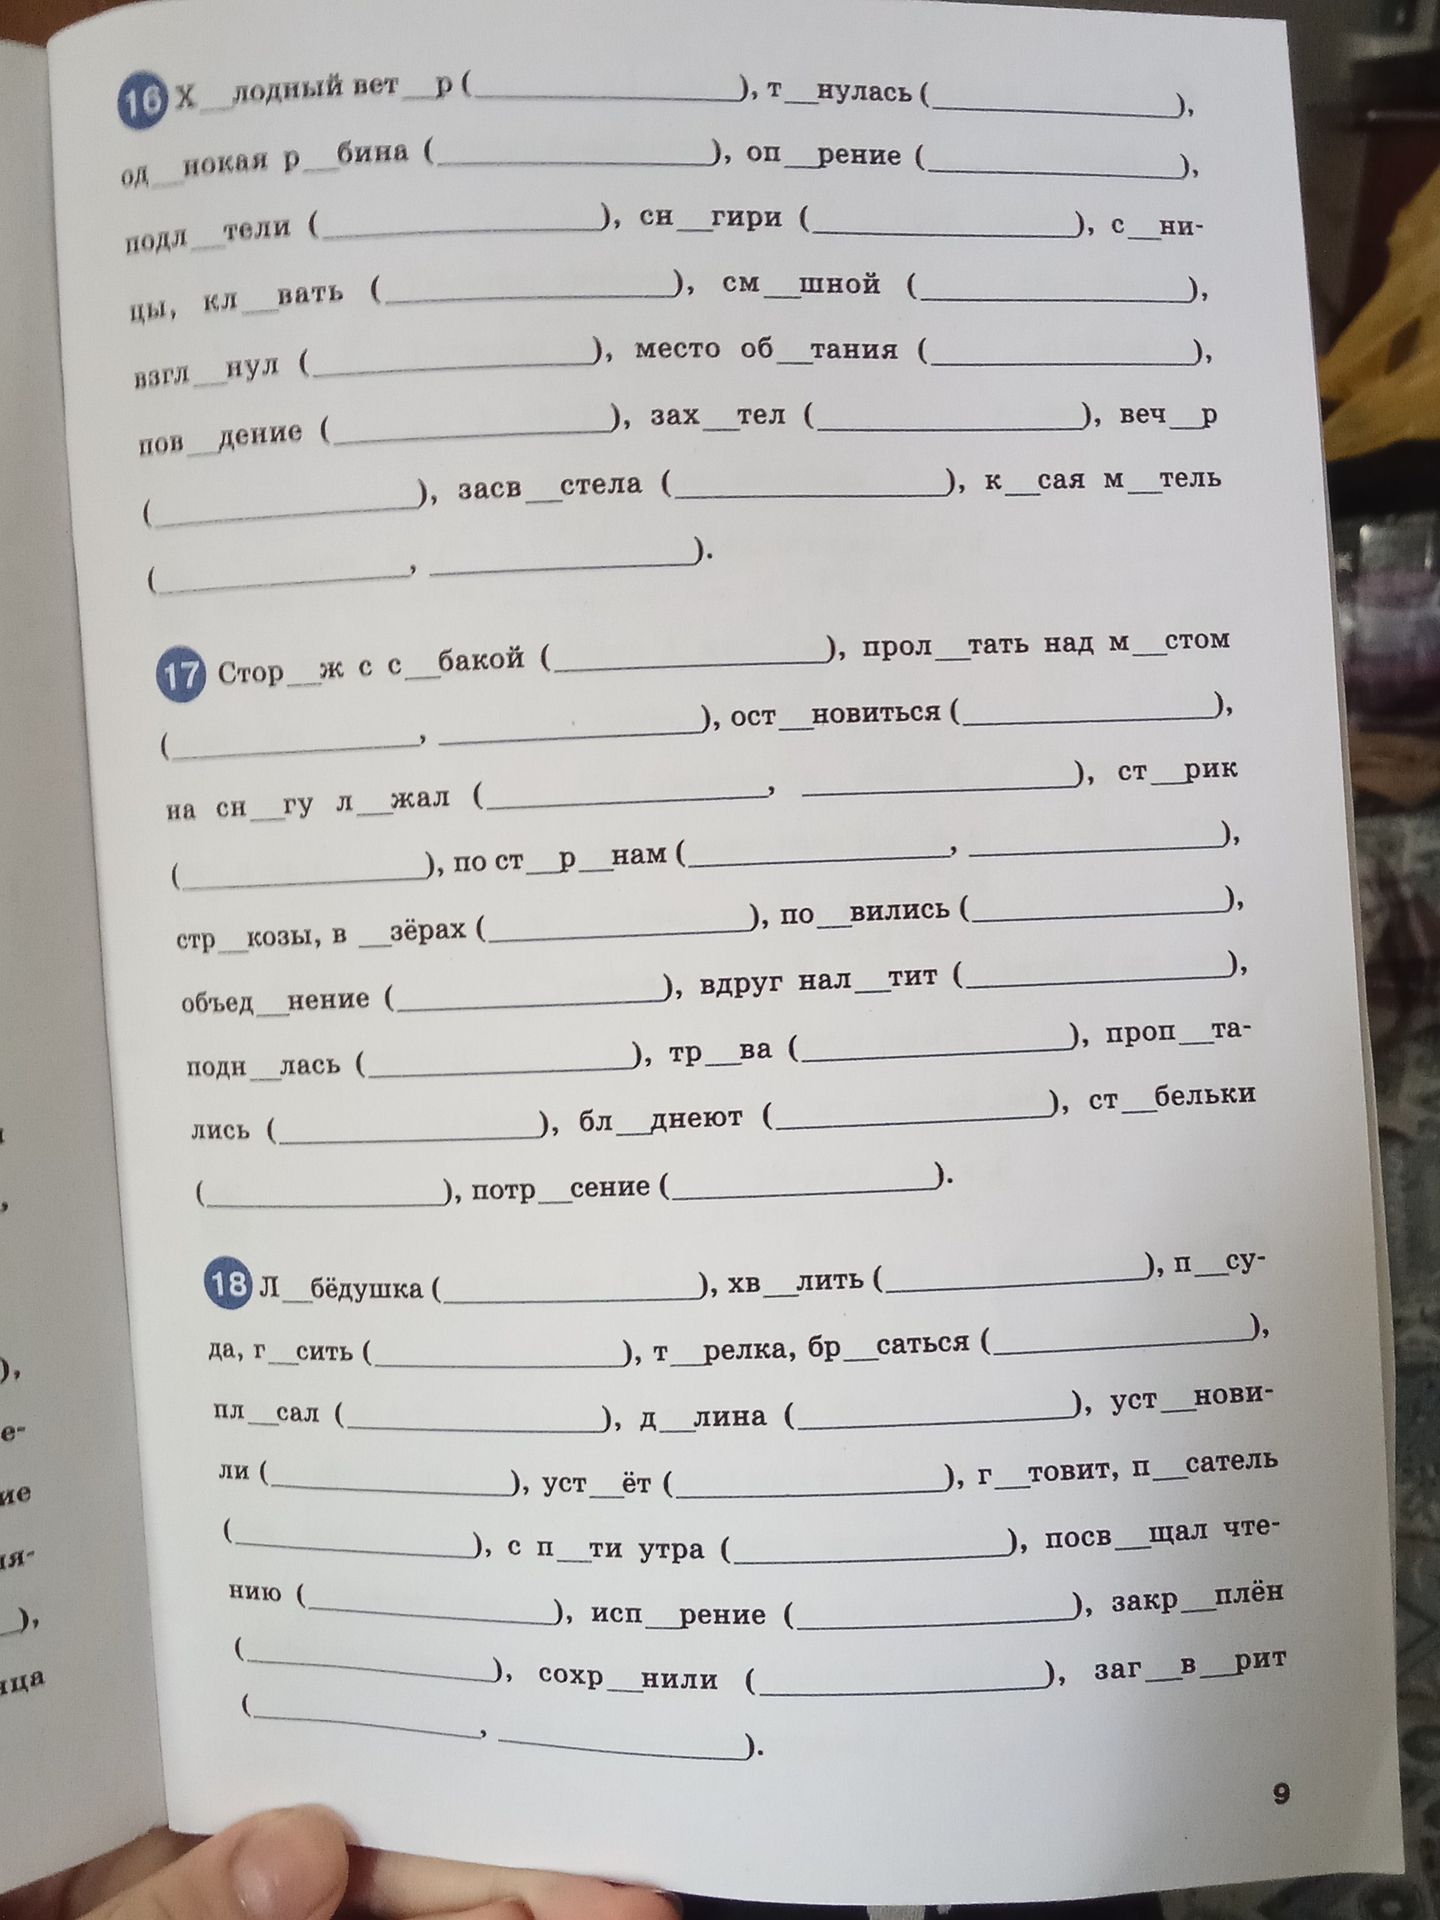 16 Х__лодный вет__р (____________), т__нулась (____________),
од__нокая р__бина (____________), оп__рение (____________),
подл__тели (____________), сн__гири (____________), с__ни-
цы, кл__вать (____________), см__шной (____________),
взгл__нул (____________), место об__тания (____________),
пов__дение (____________), зах__тел (____________), веч__р
(____________), засв__стела (____________), к__сая м__тель
(____________, ____________).
17 Стор__ж с с__бакой (____________), прол__тать над м__стом
(____________, ____________), ост__новиться (____________),
на сн__гу л__жал (____________, ____________), ст__рик
(____________), по ст__р__нам (____________, ____________),
стр__козы, в __зёрах (____________), по__вились (____________),
объед__нение (____________), вдруг нал__тит (____________),
подн__лась (____________), тр__ва (____________), проп__та-
лись (____________), бл__днеют (____________), ст__бельки
(____________), потр__сение (____________).
18 Л__бёдушка (____________), хв__лить (____________), п__су-
да, г__сить (____________), т__релка, бр__саться (____________),
пл__сал (____________), д__лина (____________), уст__нови-
ли (____________), уст__ёт (____________), г__товит, п__сатель
(____________), с п__ти утра (____________), посв__щал чте-
нию (____________), исп__рение (____________), закр__плён
(____________), сохр__нили (____________), заг__в__рит
(____________, ____________).
9
),
е-
ие
ия-
__),
ица